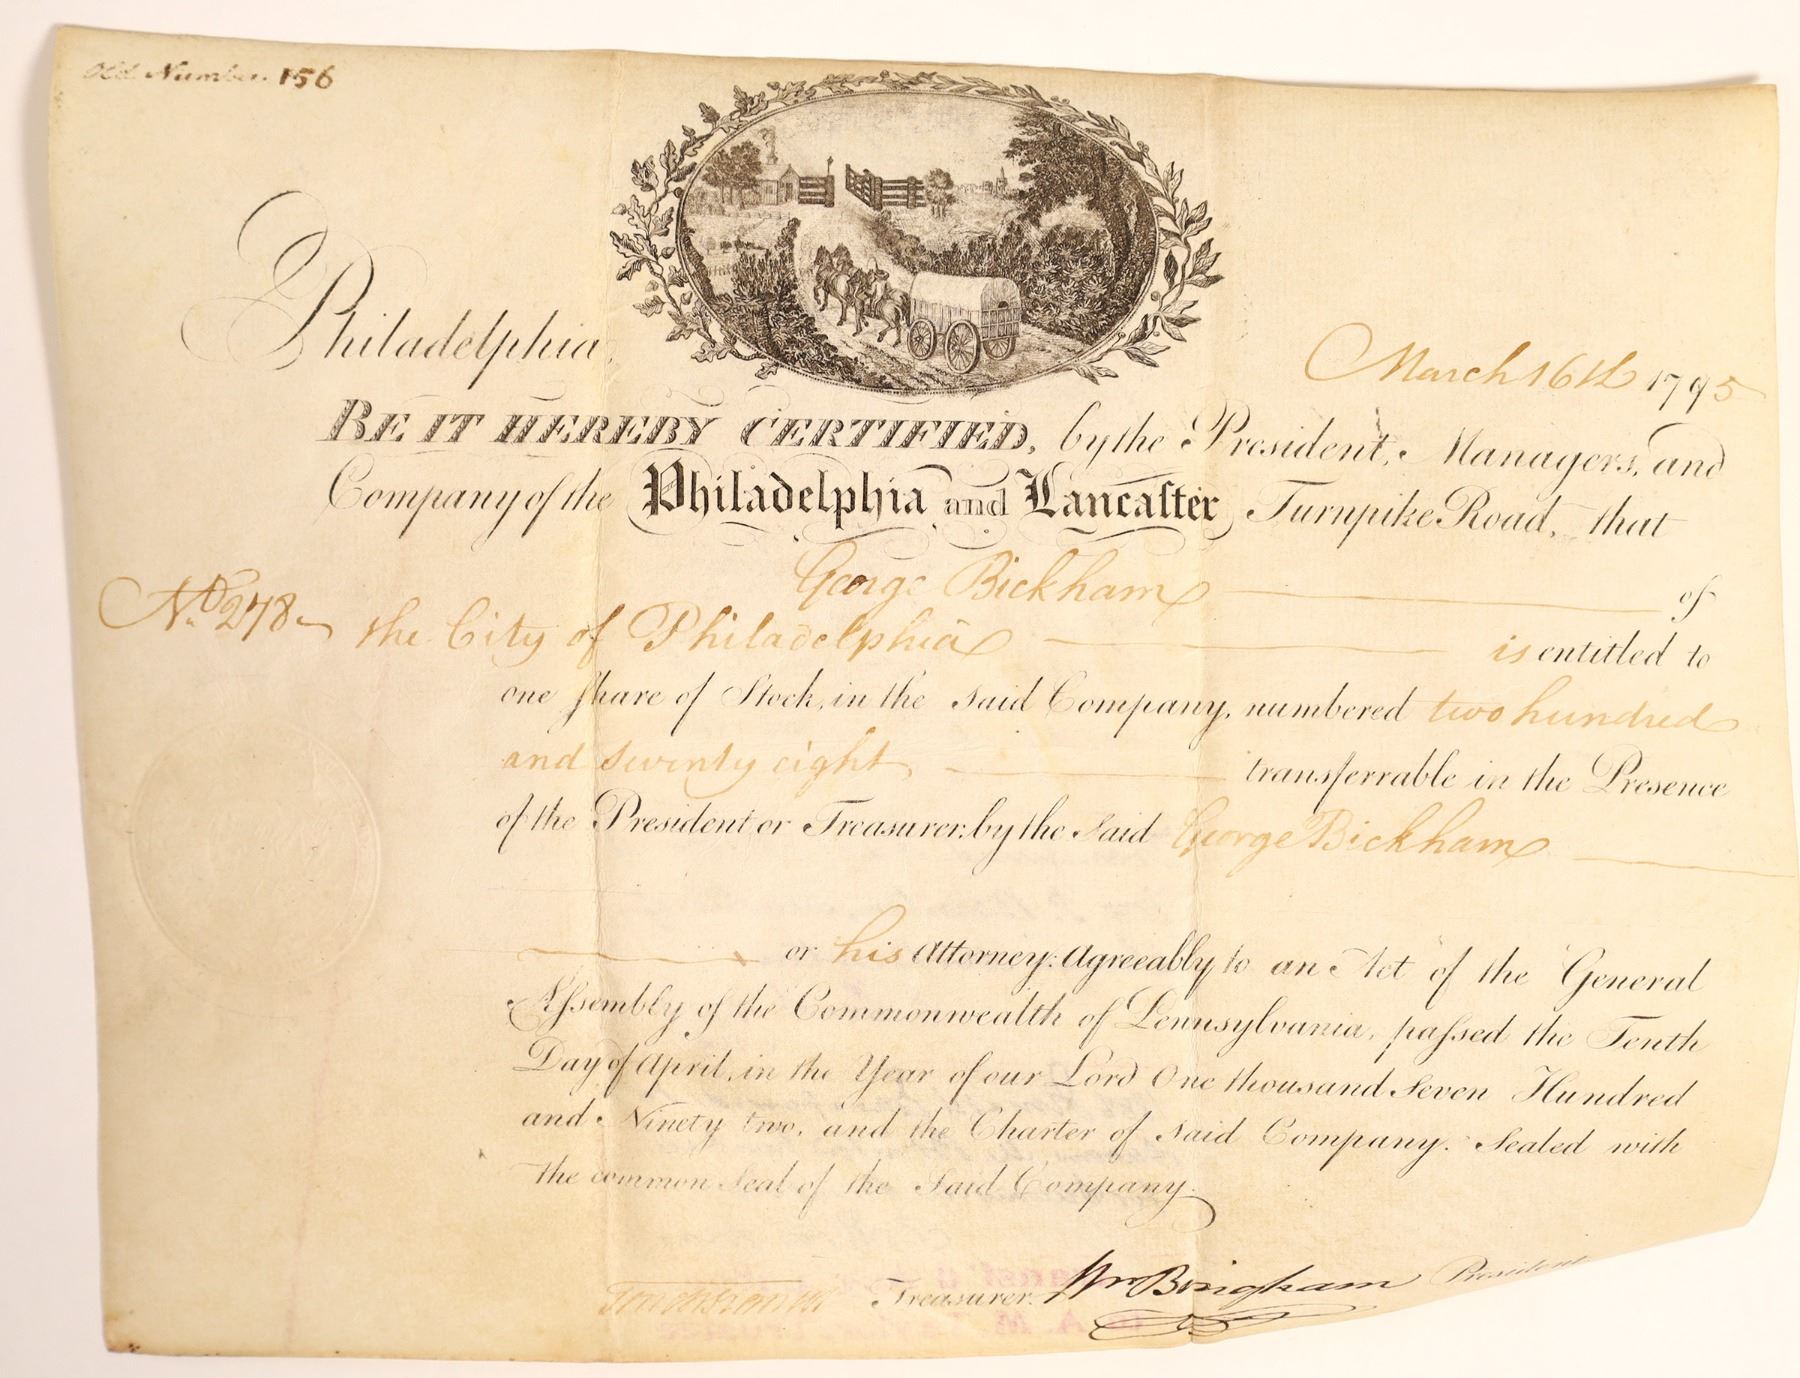 Old Number 156
Philadelphia, March 16th 1795
BE IT HEREBY CERTIFIED, by the President, Managers, and
Company of the Philadelphia and Lancaſter Turnpike Road, that
George Bickham of
No 278 the City of Philadelphia is entitled to
one ſhare of Stock, in the said Company, numbered two hundred
and seventy eight transferrable in the Presence
of the President or Treasurer, by the said George Bickham
or his Attorney: Agreeably to an Act of the General
Aſsembly of the Commonwealth of Pennsylvania, paſsed the Tenth
Day of April, in the Year of our Lord One thousand Seven Hundred
and Ninety two, and the Charter of said Company. Sealed with
the common Seal of the Said Company.
Treasurer. Wm Bingham President